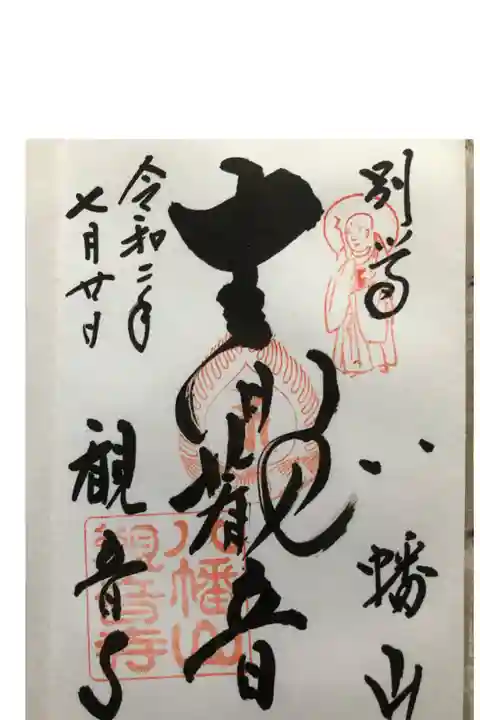 別尊
八幡山
観音
令和二年
七月廿日
観音寺
八幡山
観音寺